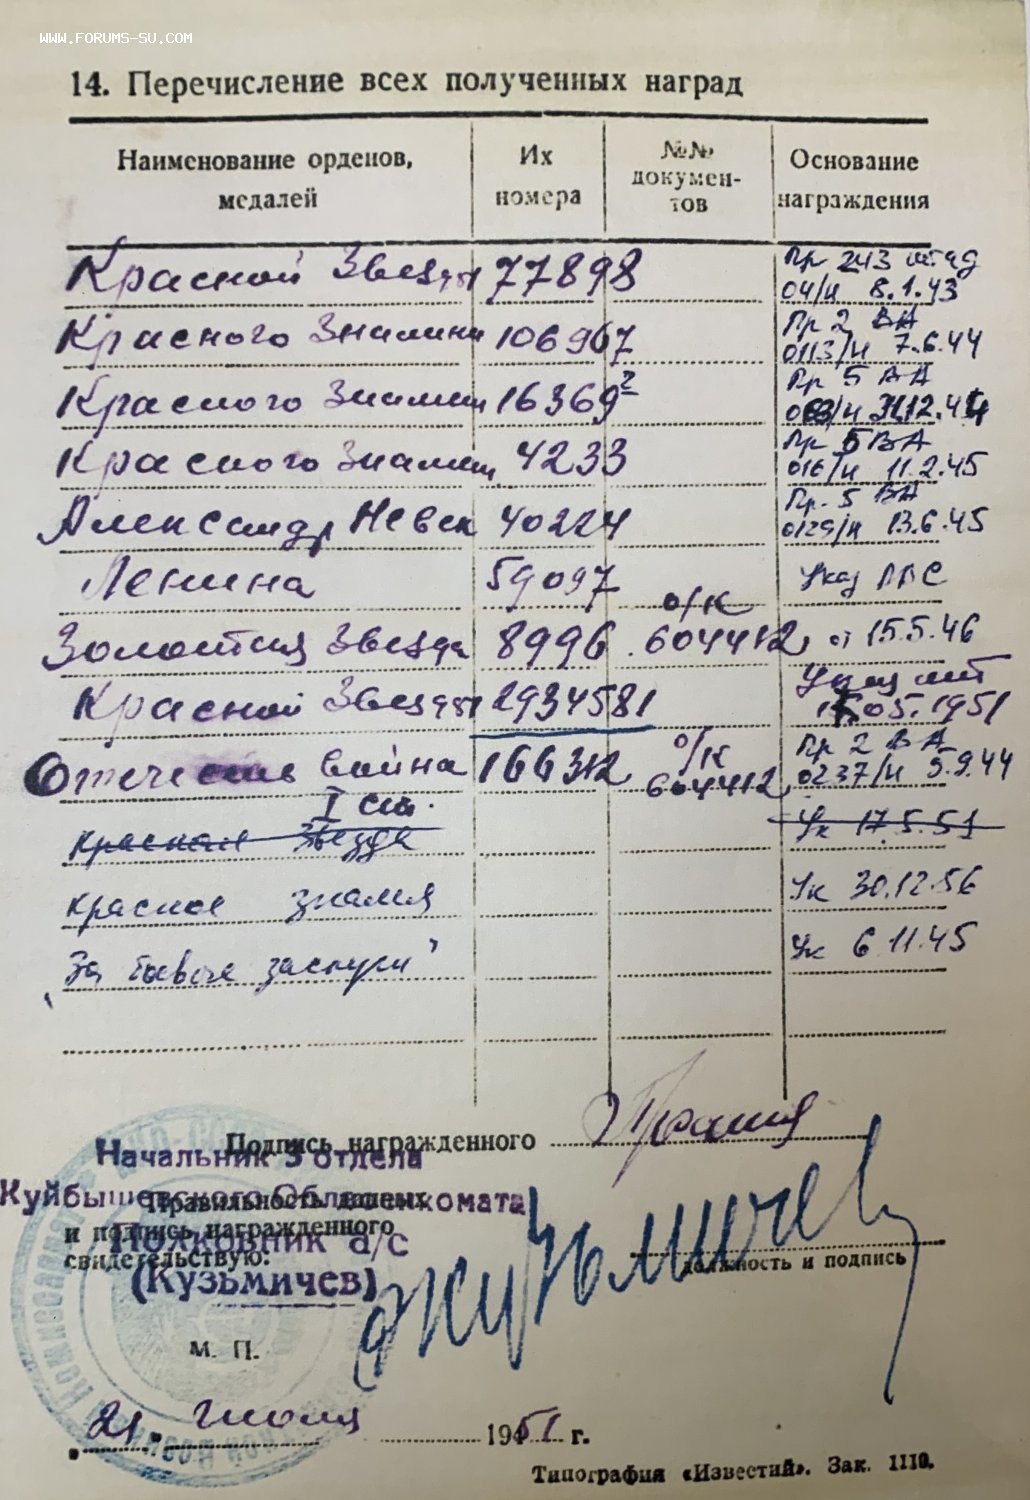 WWW.FORUMS-SU.COM
14. Перечисление всех полученных наград
Наименование орденов, медалей
Их номера
№№ докумен-тов
Основание награждения
Красной Звезды 77898 Пр 243 штад
04/н 8.1.43
Красного Знамени 106967 Пр 2 ВА
0113/н 7.6.44
Красного Знамени 16369² Пр 5 ВА
063/н 31.12.44
Красного Знамени 4233 Пр 5 ВА
016/н 11.2.45
Александр Невск 40224 Пр. 5 ВА
0129/н 13.6.45
Ленина 59097 Указ ПВС
Золотая Звезда 8996 о/к 604412 от 15.5.46
Красной Звезды 2934581 Указ
05.1951
Отечеств война 166312 о/к 604412 Пр 2 ВА
I ст. 0237/н 5.9.44
Красная Звезда Ук 17.5.51
Красное знамя Ук 30.12.56
"За боевые заслуги" Ук 6 11.45
Подпись награжденного
Начальник 3 отдела
Куйбышевского Облвоенкомата
Правильность данных
и подпись награжденного
свидетельствую:
Полковник а/с
(Кузьмичев)
Кузьмичев
должность и подпись
М. П.
21. июля 1951 г.
Типография «Известий». Зак. 1110.